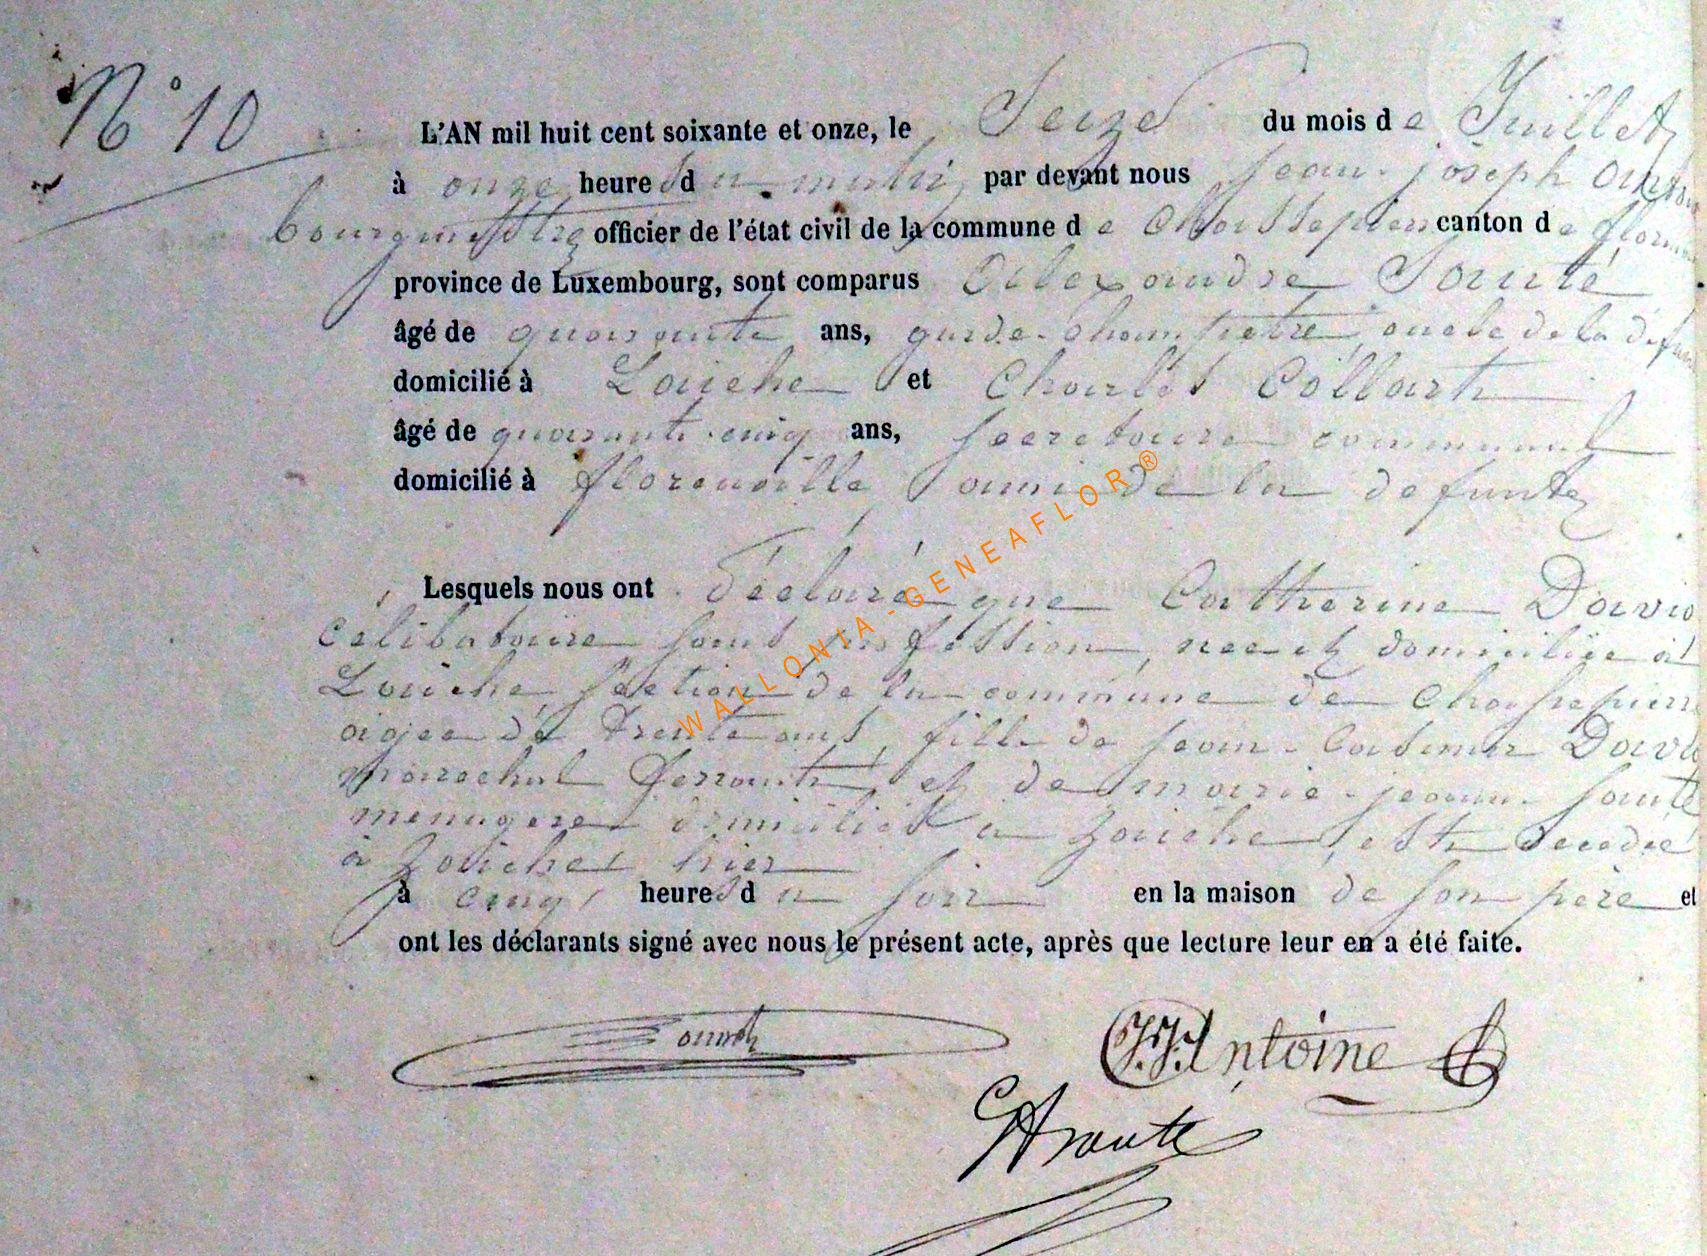 N° 10
L'AN mil huit cent soixante et onze, le Seize du mois de Juillet
à onze heures du matin, par devant nous jean-joseph
bourgmestre officier de l'état civil de la commune de Chassepierre canton de
province de Luxembourg, sont comparus Alexandre Santé
âgé de quarante ans, garde-champetre, oncle de la
domicilié à Laiche et Charles Collart
âgé de quarante cinq ans, secretaire communal
domicilié à florenville, ami de la defunte
Lesquels nous ont déclaré que Catherine
Celibataire sans profession, née et domiciliée à
Laiche, section de la commune de Chassepierre
agée de trente ans, fille de jean-Casimir
marechal ferrant et de marie-jeanne Santé
menagere domiciliés a Laiche, est decedée
à Laiche, hier
à cinq heures du soir en la maison de son père et
ont les déclarants signé avec nous le présent acte, après que lecture leur en a été faite.
J.J. Antoine
WALLONIA-GENEAFLOR®